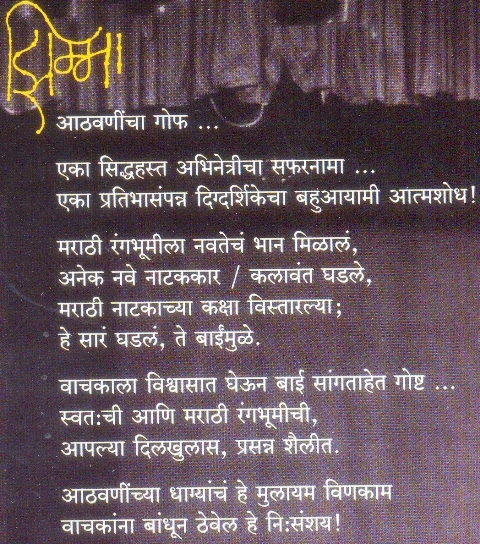 झिम्मा
आठवणींचा गोफ ...
एका सिद्धहस्त अभिनेत्रीचा सफरनामा ...
एका प्रतिभासंपन्न दिग्दर्शिकेचा बहुआयामी आत्मशोध!
मराठी रंगभूमीला नवतेचं भान मिळालं,
अनेक नवे नाटककार / कलावंत घडले,
मराठी नाटकाच्या कक्षा विस्तारल्या;
हे सारं घडलं, ते बाईंमुळे.
वाचकाला विश्वासात घेऊन बाई सांगताहेत गोष्ट ...
स्वत:ची आणि मराठी रंगभूमीची,
आपल्या दिलखुलास, प्रसन्न शैलीत.
आठवणींच्या धाग्यांचं हे मुलायम विणकाम
वाचकांना बांधून ठेवेल हे नि:संशय!